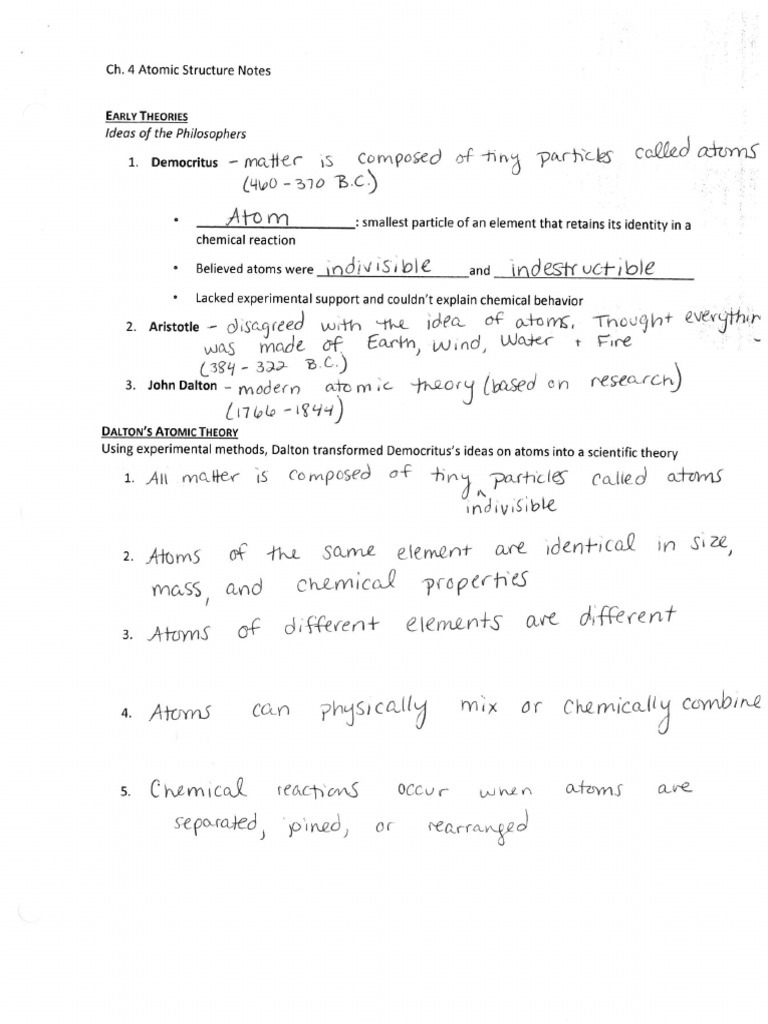 Ch. 4 Atomic Structure Notes
EARLY THEORIES
Ideas of the Philosophers
1. Democritus – matter is composed of tiny particles called atoms
(460 – 370 B.C.)
• Atom : smallest particle of an element that retains its identity in a
chemical reaction
• Believed atoms were indivisible and indestructible
• Lacked experimental support and couldn't explain chemical behavior
2. Aristotle – disagreed with the idea of atoms. Thought everythin
was made of Earth, Wind, Water + Fire
(384 – 322 B.C.)
3. John Dalton – modern atomic theory (based on research)
(1766 – 1844)
DALTON'S ATOMIC THEORY
Using experimental methods, Dalton transformed Democritus's ideas on atoms into a scientific theory
1. All matter is composed of tiny ^ particles called atoms
indivisible
2. Atoms of the same element are identical in size,
mass, and chemical properties
3. Atoms of different elements are different
4. Atoms can physically mix or chemically combine
5. Chemical reactions occur when atoms are
separated, joined, or rearranged